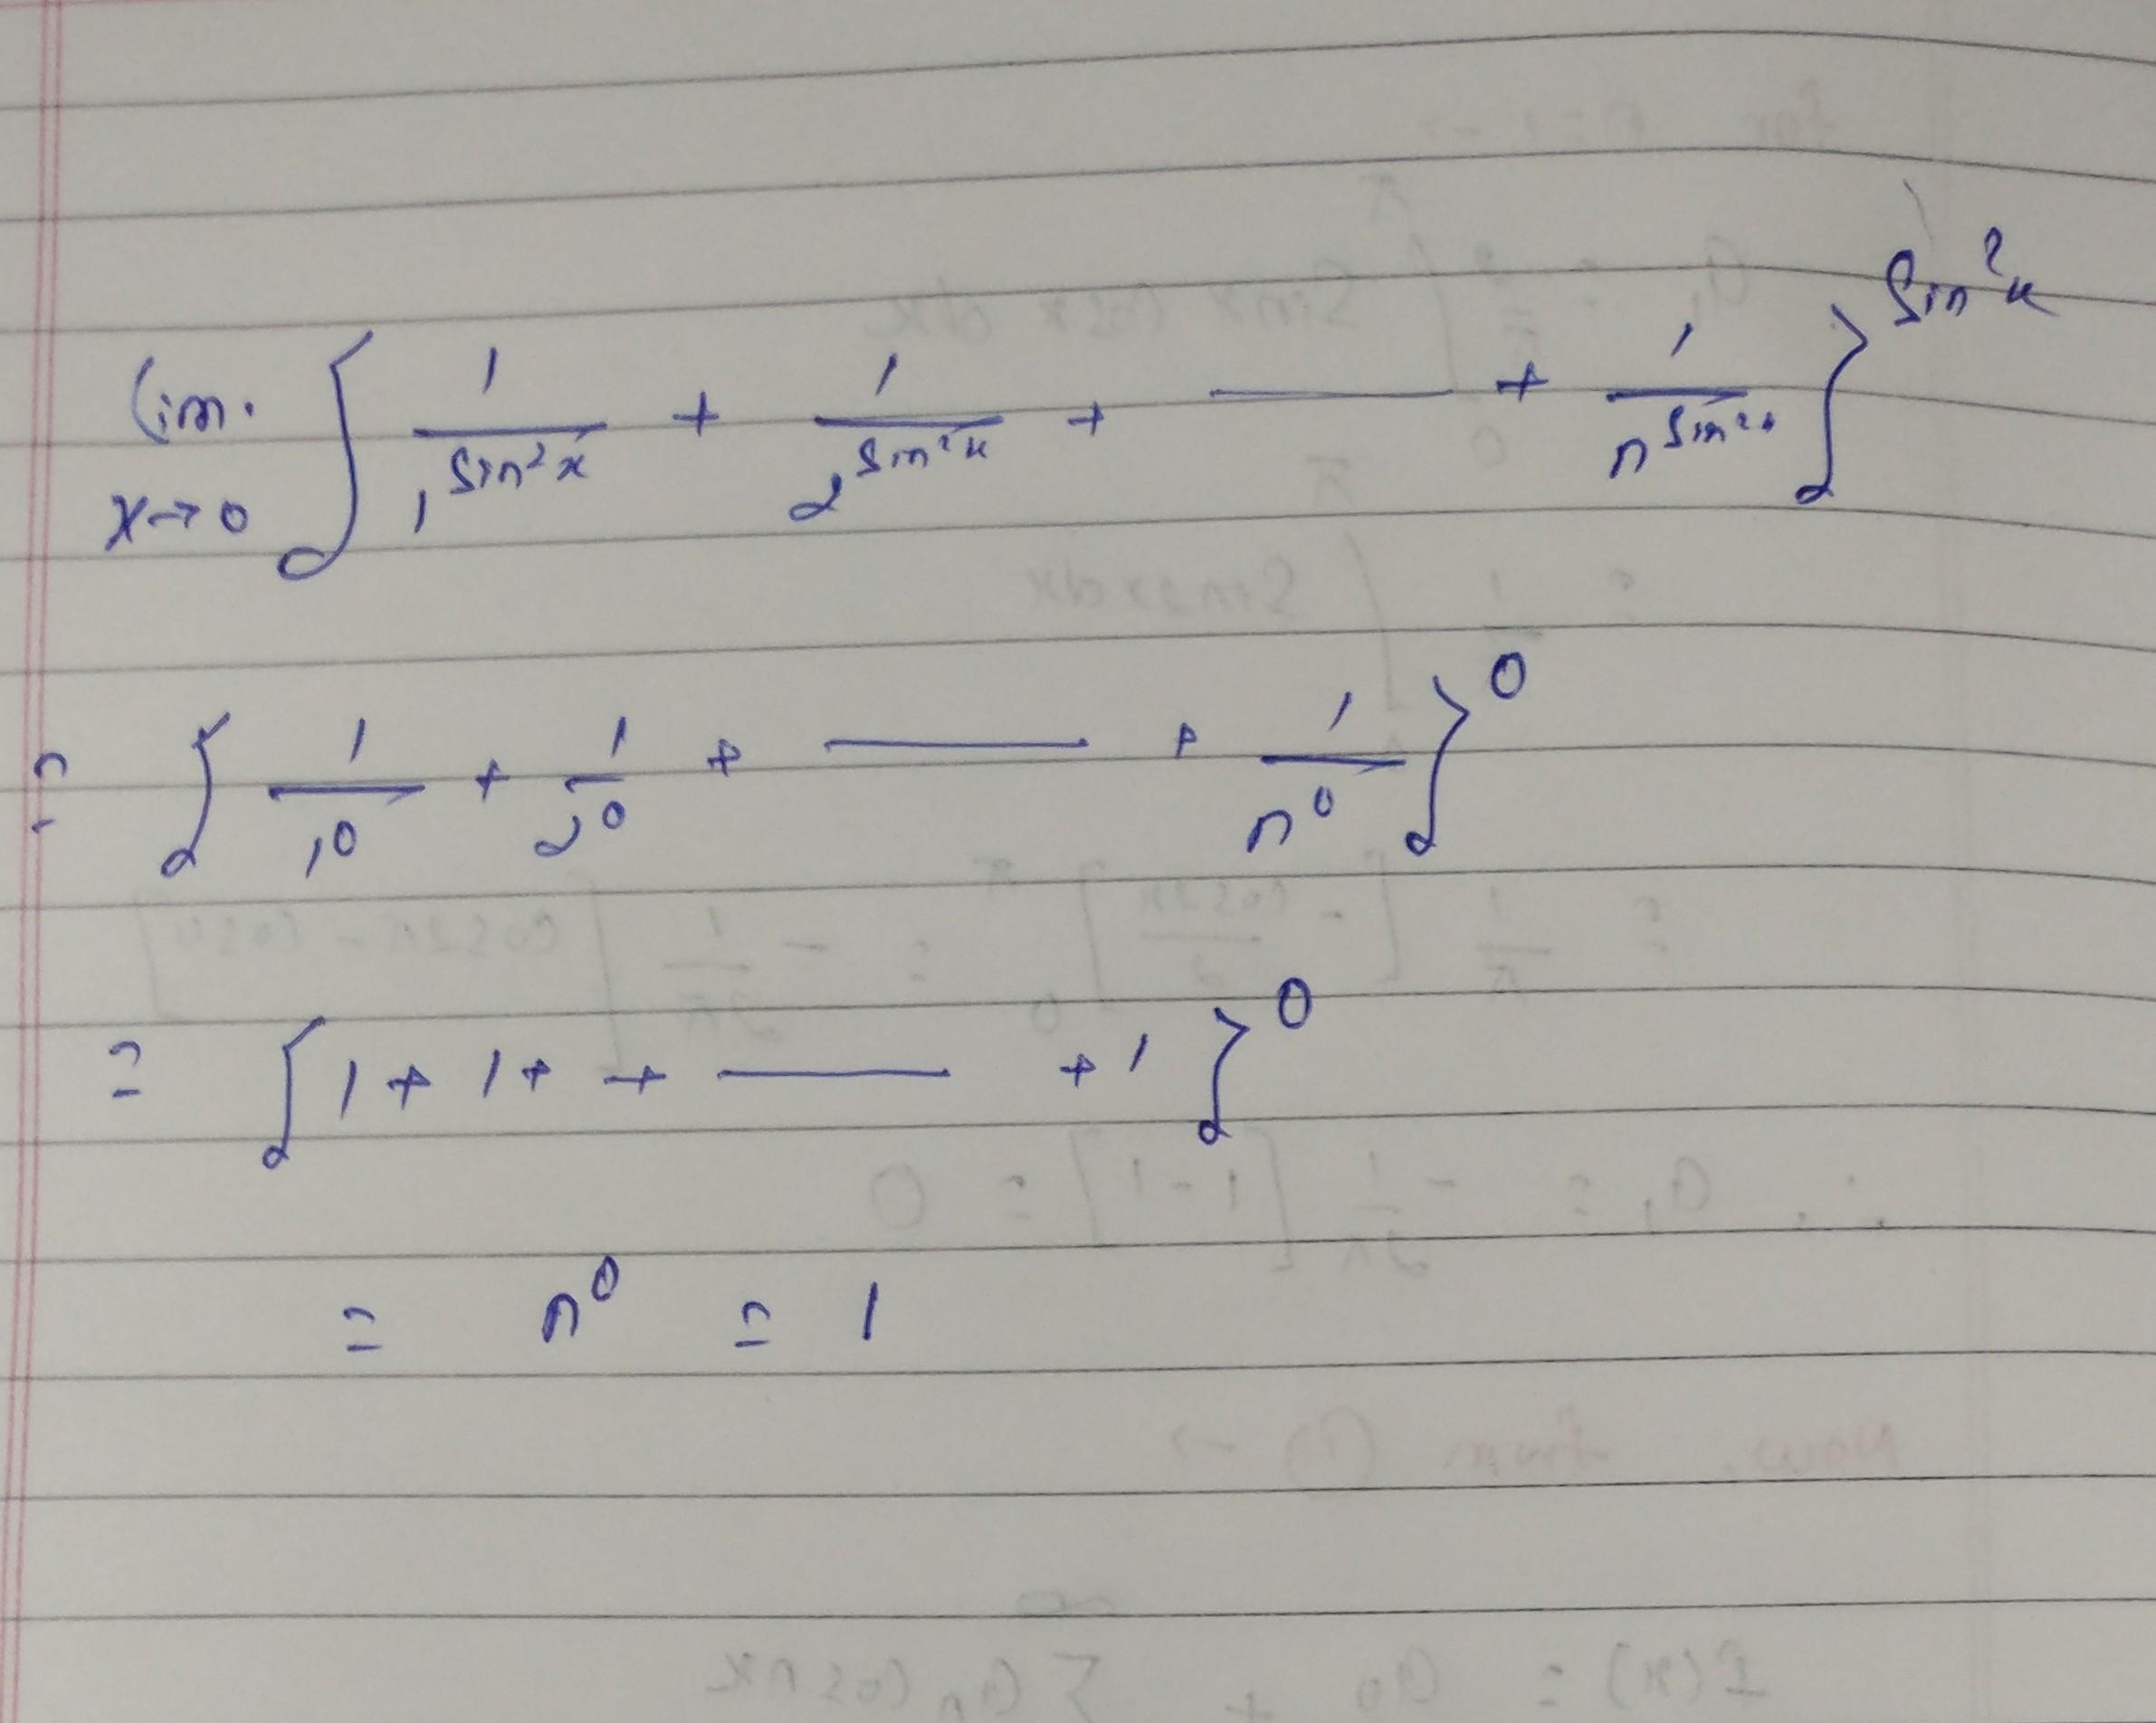 lim. x→0 { 1/1^sin²x + 1/2^sin²x + —— + 1/n^sin²x }^sin²x
= { 1/1^0 + 1/2^0 + —— + 1/n^0 }^0
= { 1 + 1 + + —— + 1 }^0
= n^0 = 1